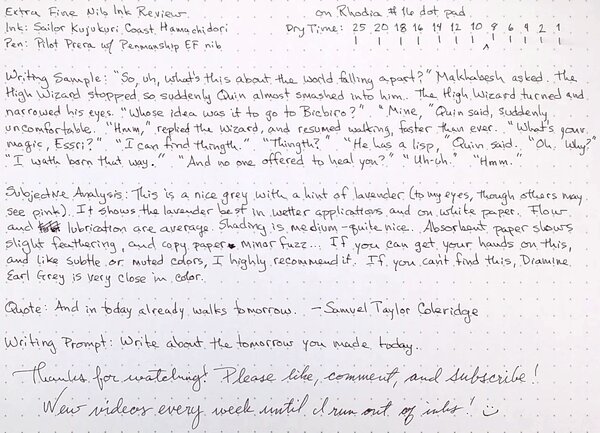 Extra Fine Nib Ink Review on Rhodia #16 dot pad
Ink: Sailor Kujukuri Coast Hamachidori Dry Time: 25 20 18 16 14 12 10 8 6 4 2 1
Pen: Pilot Prera w/ Penmanship EF nib
Writing Sample: "So, uh, what's this about the world falling apart?" Makhabesh asked. The
High Wizard stopped so suddenly Quin almost smashed into him. The High Wizard turned and
narrowed his eyes. "Whose idea was it to go to Bicbiro?" "Mine," Quin said, suddenly
uncomfortable. "Hmm," replied the wizard, and resumed walking, faster than ever. "What's your
magic, Essri?" "I can find thingth." "Thingth?" "He has a lisp," Quin said. "Oh. Why?"
"I wath born that way." "And no one offered to heal you?" "Uh-uh." "Hmm."
Subjective Analysis: This is a nice grey with a hint of lavender (to my eyes, though others may
see pink). It shows the lavender best in wetter applications and on white paper. Flow
and lubrication are average. Shading is medium - quite nice. Absorbent paper shows
slight feathering, and copy paper minor fuzz... If you can get your hands on this,
and like subtle or muted colors, I highly recommend it. If you can't find this, Diamine
Earl Grey is very close in color.
Quote: And in today already walks tomorrow. - Samuel Taylor Coleridge
Writing Prompt: Write about the tomorrow you made today.
Thanks for watching! Please like, comment, and subscribe!
New videos every week until I run out of inks!